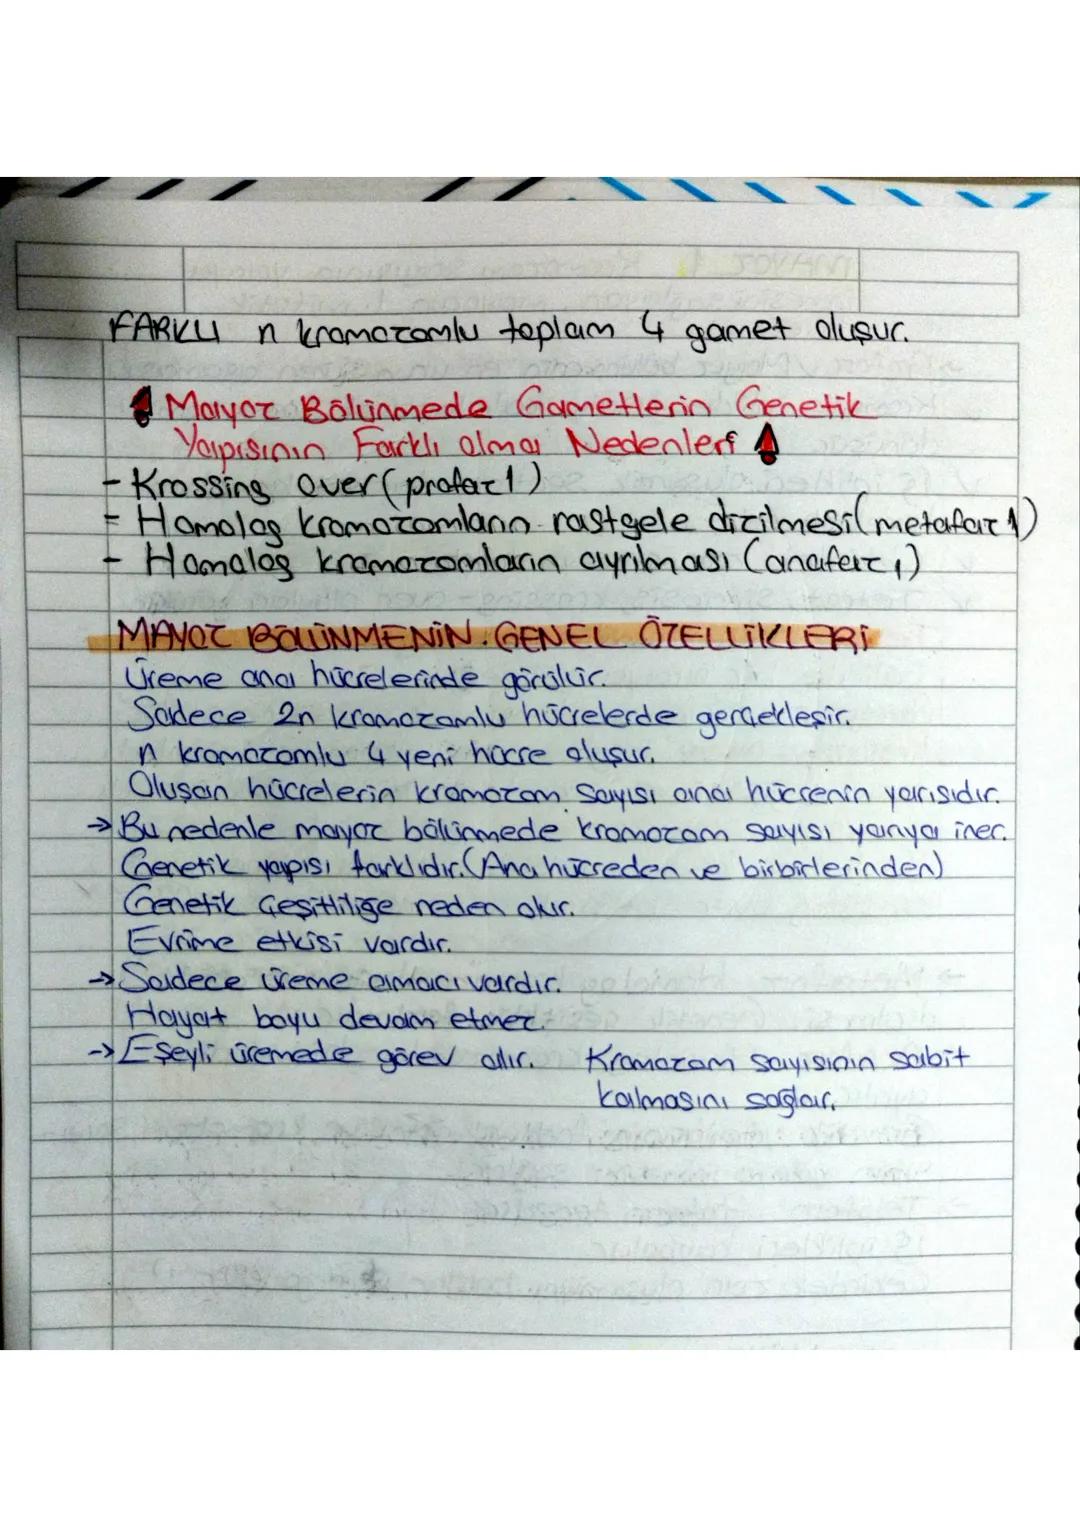 FARKLI n kromozomlu toplam 4 gamet oluşur.
Mayoz Bölünmede Gametlerin Genetik
Yapısının Farklı olma Nedenleri
- Krossing over (profaz 1)
- Homolog kromozomların rastgele dizilmesi (metafaz 1)
- Homolog kromozomların ayrılması (anafaz 1)
MAYOZ BÖLÜNMENİN GENEL ÖZELLİKLERİ
Üreme ana hücrelerinde görülür.
Sadece 2n kromozomlu hücrelerde gerçekleşir.
n kromozomlu 4 yeni hücre oluşur.
Oluşan hücrelerin kromozom sayısı ana hücrenin yarısıdır.
→ Bu nedenle mayoz bölünmede kromozom sayısı yarıya iner.
Genetik yapısı farklıdır. (Ana hücreden ve birbirlerinden)
Genetik çeşitliliğe neden olur.
Evrime etkisi vardır.
→ Sadece üreme amacı vardır.
Hayat boyu devam etmez.
→ Eşeyli üremede görev alır. Kromozom sayısının sabit
kalmasını sağlar.